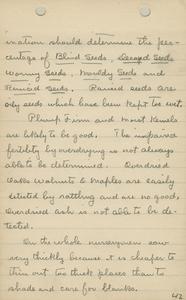 ination should determine the per-
centage of Blind Seeds, Decayed Seeds
Wormy Seeds, Mouldy Seeds and
Rancid Seeds. Rancid seeds are
oily seeds which have been kept too wet.
Plump Firm and Moist Kernels
are likely to be good. The impaired
fertility by overdrying is not always
able to be determined. Overdried
Oaks Walnuts & Maples are easily
tested by rattling and are no good,
Overdried ash is not able to be de-
tected.
On the whole nurserymen sow
very thickly because it is cheaper to
thin out too thick places than to
shade and care for blanks.